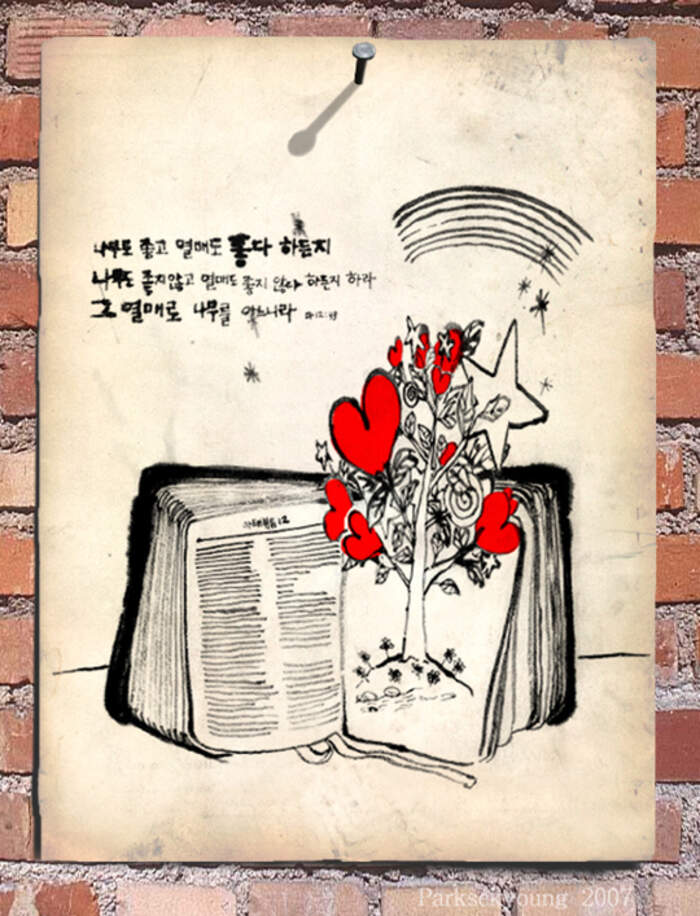 나무도 좋고 열매도 좋다 하든지
나무도 좋지않고 열매도 좋지 않다 하든지 하라
그 열매로 나무를 아느니라 마12:33
마태복음 12
Parksekyoung 2007